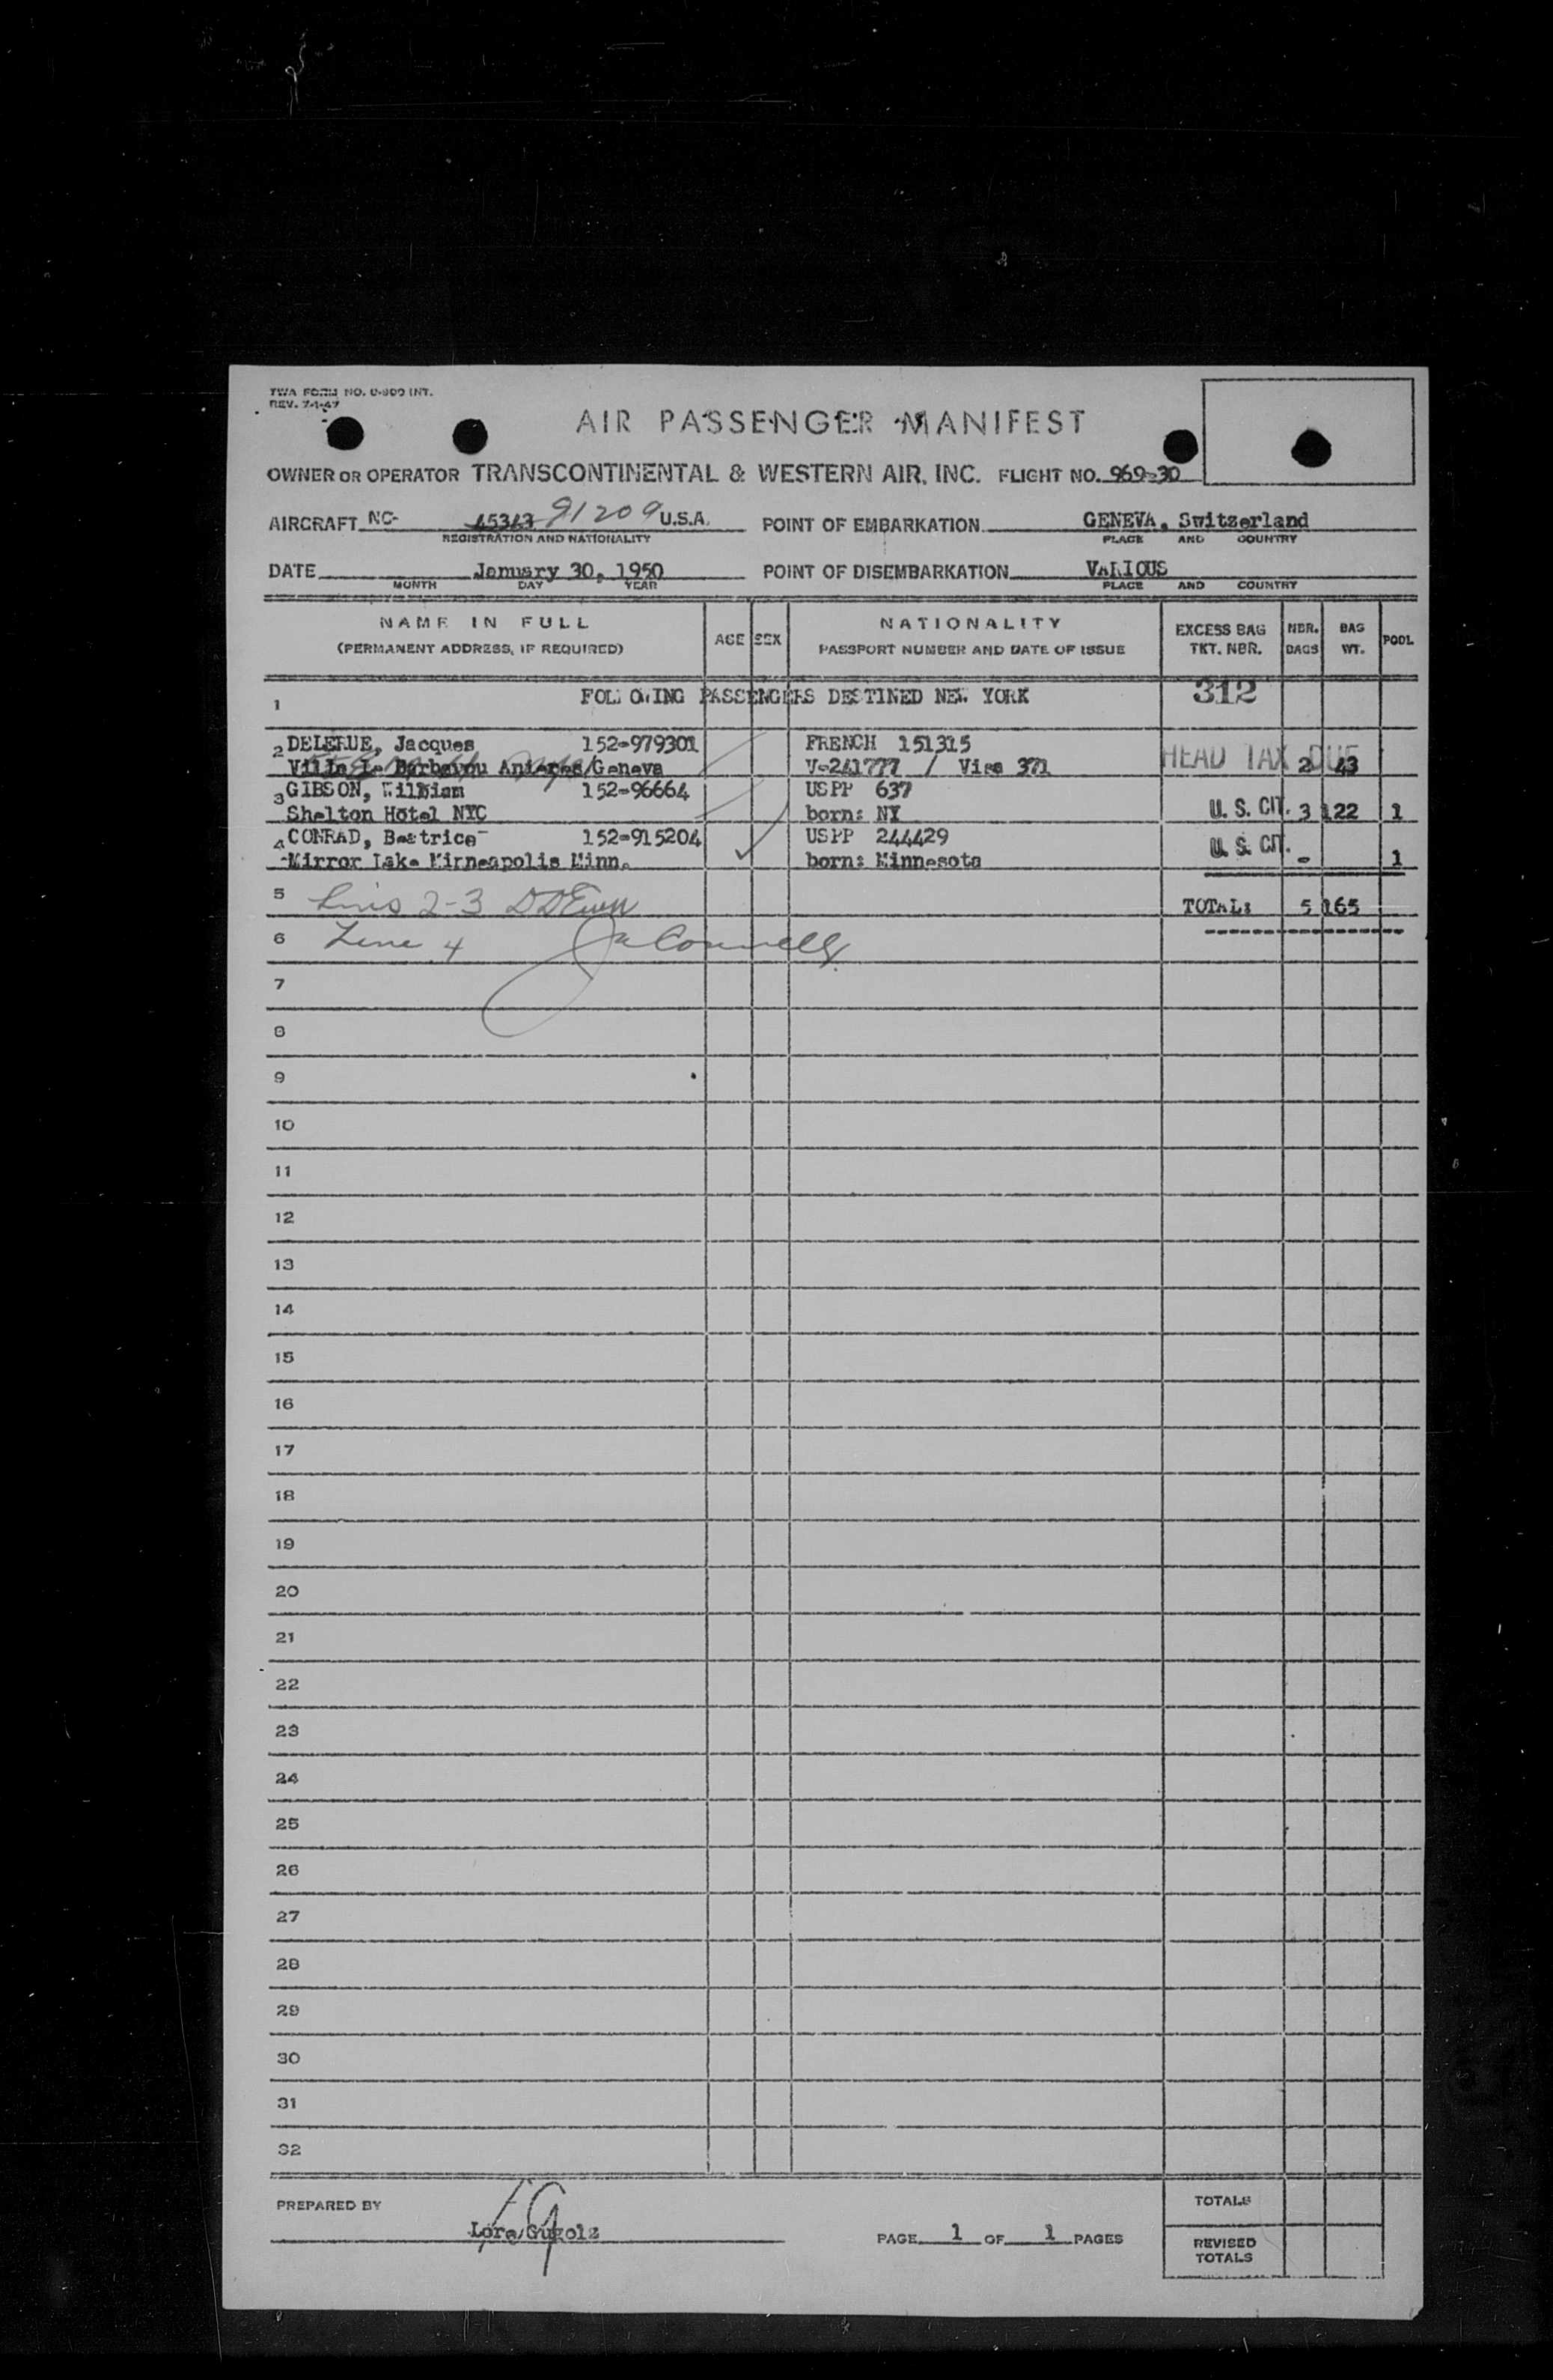 TWA FORM NO. 0-900 INT.
REV. 7-1-47
AIR PASSENGER MANIFEST
OWNER OR OPERATOR TRANSCONTINENTAL & WESTERN AIR, INC. FLIGHT NO. 969-30
AIRCRAFT NC- 45343 91209 U.S.A. POINT OF EMBARKATION GENEVA, Switzerland
REGISTRATION AND NATIONALITY PLACE AND COUNTRY
DATE January 30, 1950 POINT OF DISEMBARKATION VARIOUS
MONTH DAY YEAR PLACE AND COUNTRY
NAME IN FULL AGE SEX NATIONALITY EXCESS BAG NBR. BAG POOL
(PERMANENT ADDRESS, IF REQUIRED) PASSPORT NUMBER AND DATE OF ISSUE TKT. NBR. BAGS WT.
1 FOLLOWING PASSENGERS DESTINED NEW YORK 312
2 DELERUE, Jacques 152-979301 FRENCH 151315
Villa Le Anieres/Geneva V-241777 / Visa 371 HEAD TAX DUE 2 43
3 GIBSON, William 152-96664 USPP 637
Shelton Hotel NYC born: NY U. S. CIT. 3 122 1
4 CONRAD, Beatrice 152-915204 USPP 244429
Mirror Lake Minneapolis Minn. born: Minnesota U. S. CIT. - 1
5 Lines 2-3 TOTAL: 5 165
6 Line 4
7
8
9
10
11
12
13
14
15
16
17
18
19
20
21
22
23
24
25
26
27
28
29
30
31
32
PREPARED BY TOTALS
Lore PAGE 1 OF 1 PAGES REVISED
TOTALS